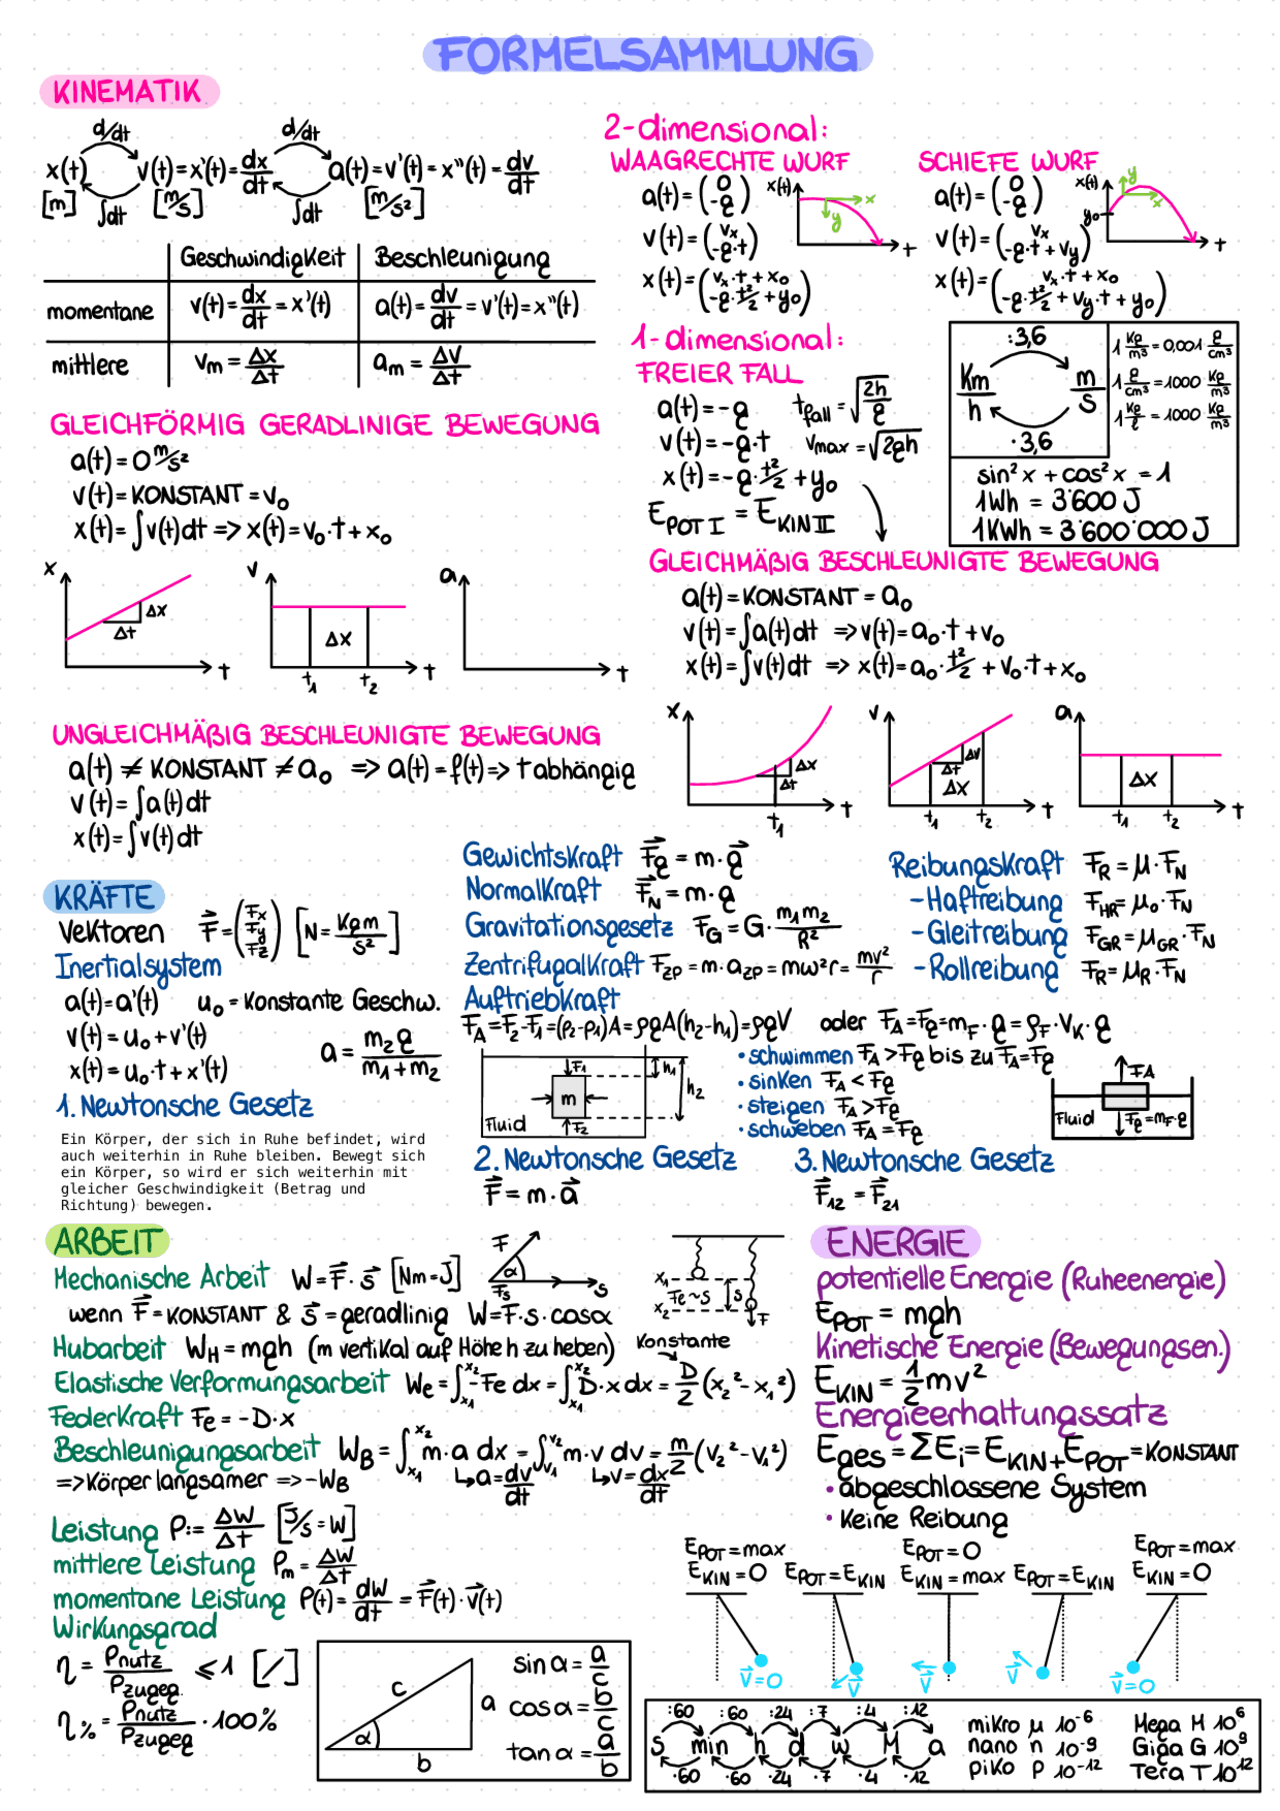 FORMELSAMMLUNG
KINEMATIK
d/dt d/dt
x(t) v(t) = x'(t) = dx/dt a(t) = v'(t) = x''(t) = dv/dt
[m] ∫dt [m/s] ∫dt [m/s²]
Geschwindigkeit Beschleunigung
momentane v(t) = dx/dt = x'(t) a(t) = dv/dt = v'(t) = x''(t)
mittlere vm = Δx/Δt am = Δv/Δt
GLEICHFÖRMIG GERADLINIGE BEWEGUNG
a(t) = 0 m/s²
v(t) = KONSTANT = v₀
x(t) = ∫v(t)dt => x(t) = v₀·t + x₀
x Δx Δt t
v Δx t₁ t₂ t
a t
UNGLEICHMÄßIG BESCHLEUNIGTE BEWEGUNG
a(t) ≠ KONSTANT ≠ a₀ => a(t) = f(t) => t abhängig
v(t) = ∫a(t)dt
x(t) = ∫v(t)dt
2-dimensional:
WAAGRECHTE WURF
a(t) = (0 / -g)
v(t) = (vx / -g·t)
x(t) = (vx·t + x₀ / -g·t²/2 + y₀)
x(t) x y t
SCHIEFE WURF
a(t) = (0 / -g)
v(t) = (vx / -g·t + vy)
x(t) = (vx·t + x₀ / -g·t²/2 + vy·t + y₀)
x(t) y x y₀ t
1-dimensional:
FREIER FALL
a(t) = -g tfall = √2h/g
v(t) = -g·t vmax = √2gh
x(t) = -g·t²/2 + y₀
EPOT I = EKIN II
:3,6
Km/h m/s
·3,6
1 kg/m³ = 0,001 g/cm³
1 g/cm³ = 1000 kg/m³
1 kg/ℓ = 1000 kg/m³
sin² x + cos² x = 1
1Wh = 3'600 J
1KWh = 3'600'000 J
GLEICHMÄßIG BESCHLEUNIGTE BEWEGUNG
a(t) = KONSTANT = a₀
v(t) = ∫a(t)dt => v(t) = a₀·t + v₀
x(t) = ∫v(t)dt => x(t) = a₀·t²/2 + v₀·t + x₀
x Δx Δt t₁ t
v Δv Δt Δx t₁ t₂ t
a Δx t₁ t₂ t
KRÄFTE
Vektoren F = (Fx / Fy / Fz) [N = kgm/s²]
Inertialsystem
a(t) = a'(t) u₀ = Konstante Geschw.
v(t) = u₀ + v'(t)
x(t) = u₀·t + x'(t)
a = m₂g/m₁+m₂
1. Newtonsche Gesetz
Ein Körper, der sich in Ruhe befindet, wird
auch weiterhin in Ruhe bleiben. Bewegt sich
ein Körper, so wird er sich weiterhin mit
gleicher Geschwindigkeit (Betrag und
Richtung) bewegen.
Gewichtskraft Fg = m·g
Normalkraft FN = m·g
Gravitationsgesetz FG = G·m₁m₂/R²
Zentrifugalkraft FZP = m·aZP = mω²r = mv²/r
Auftriebkraft
FA = F₂-F₁ = (p₂-p₁)A = ρgA(h₂-h₁) = ρgV oder FA = Fg = mF·g = ρF·VK·g
Reibungskraft FR = μ·FN
-Haftreibung FHR = μ₀·FN
-Gleitreibung FGR = μGR·FN
-Rollreibung FR = μR·FN
F₁ h₁ h₂
m
Fluid F₂
• schwimmen FA > Fg bis zu FA = Fg
• sinken FA < Fg
• steigen FA > Fg
• schweben FA = Fg
FA
Fluid Fg = mF·g
2. Newtonsche Gesetz
F = m·a
3. Newtonsche Gesetz
F₁₂ = F₂₁
ARBEIT
Mechanische Arbeit W = F·s [Nm = J]
F α Fs s
wenn F = KONSTANT & s = geradlinig W = F·s·cosα
x₁ Fe~s s x₂ F
Hubarbeit WH = mgh (m vertikal auf Höhe h zu heben)
Konstante
Elastische Verformungsarbeit We = ∫x₁x₂ -Fe dx = ∫x₁x₂ D·x dx = D/2 (x₂²-x₁²)
Federkraft Fe = -D·x
Beschleunigungsarbeit WB = ∫x₁x₂ m·a dx = ∫v₁v₂ m·v dv = m/2 (v₂²-v₁²)
=> Körper langsamer => -WB ↳a = dv/dt ↳v = dx/dt
Leistung P:= ΔW/Δt [J/s = W]
mittlere Leistung Pm = ΔW/Δt
momentane Leistung P(t) = dW/dt = F(t)·v(t)
Wirkungsgrad
η = Pnutz/Pzugeg ≤ 1 [/]
η% = Pnutz/Pzugeg · 100%
c a α b
sin α = a/c
cos α = b/c
tan α = a/b
ENERGIE
potentielle Energie (Ruheenergie)
EPOT = mgh
Kinetische Energie (Bewegungsen.)
EKIN = 1/2 mv²
Energieerhaltungssatz
Eges = ΣEi = EKIN + EPOT = KONSTANT
• abgeschlossene System
• Keine Reibung
EPOT = max EKIN = 0
EPOT = EKIN
EPOT = 0 EKIN = max
EPOT = EKIN
EPOT = max EKIN = 0
v = 0 v v v v = 0
:60 :60 :24 :7 :4 :12
s min h d w M a
·60 ·60 ·24 ·7 ·4 ·12
mikro μ 10⁻⁶
nano n 10⁻⁹
piko p 10⁻¹²
Mega M 10⁶
Giga G 10⁹
Tera T 10¹²